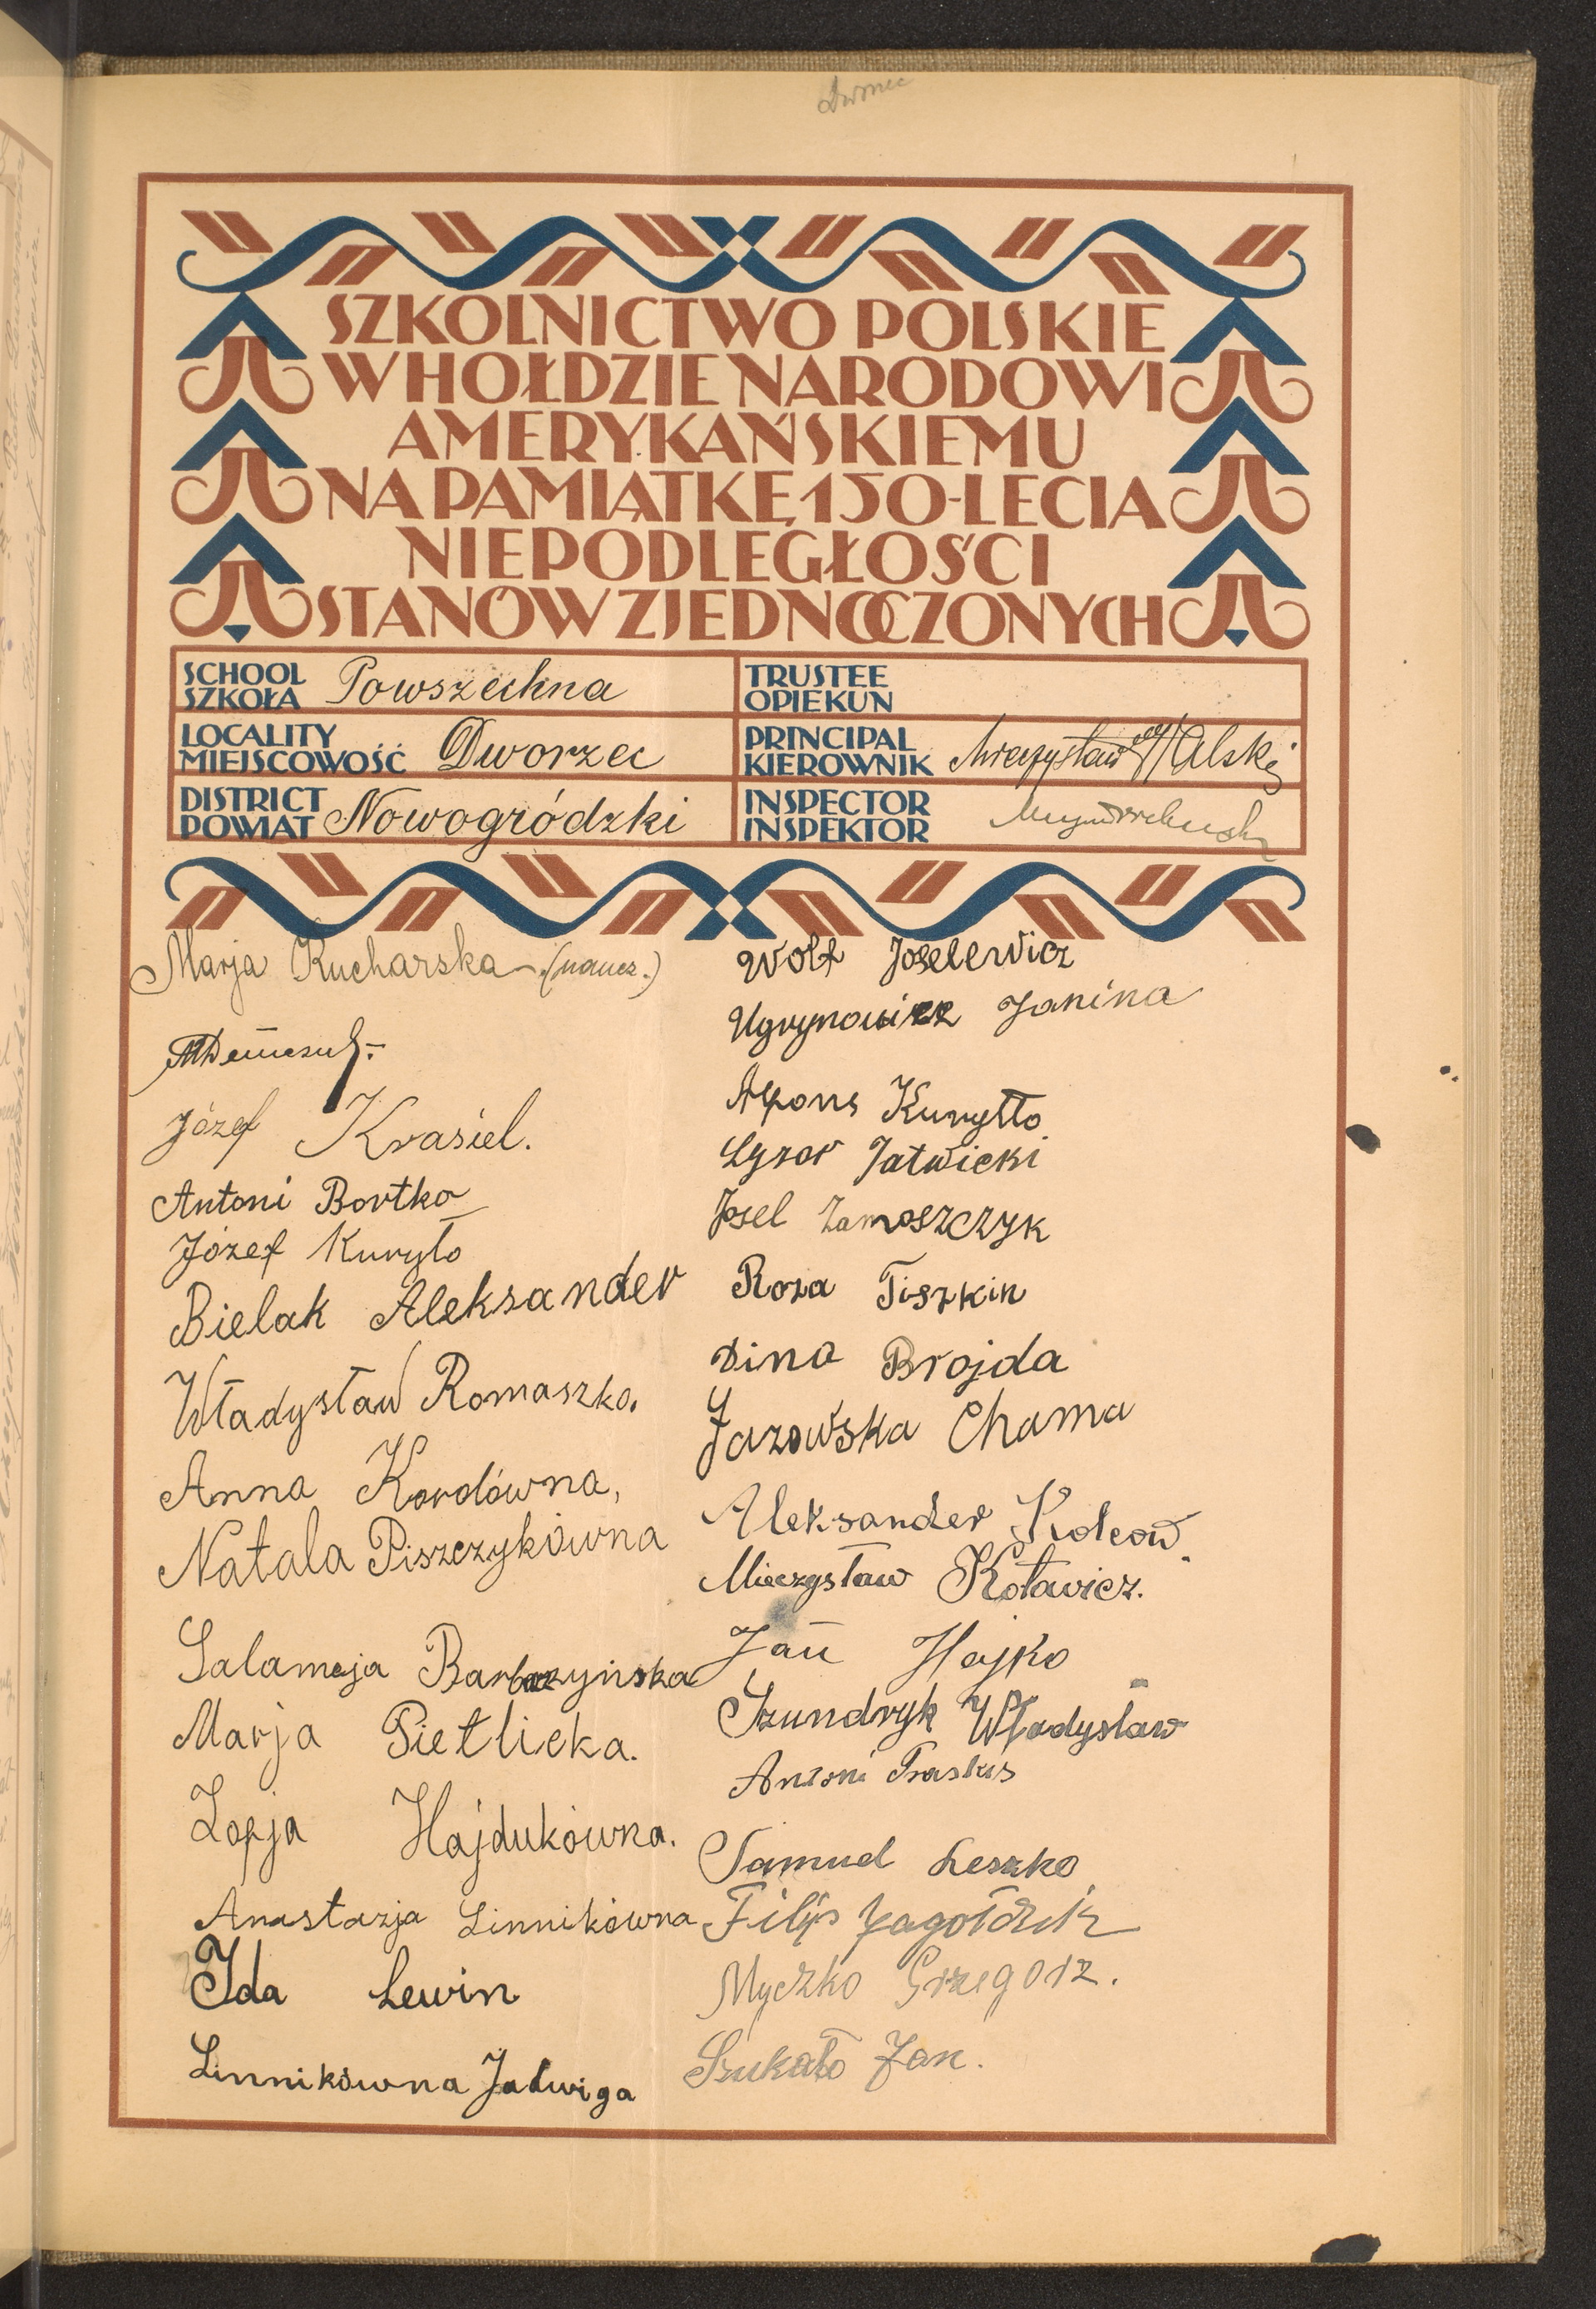 SZKOLNICTWO POLSKIE
W HOŁDZIE NARODOWI
AMERYKAŃSKIEMU
NA PAMIĄTKĘ 150-LECIA
NIEPODLEGŁOŚCI
STANÓW ZJEDNOCZONYCH
SCHOOL
SZKOŁA Powszechna
TRUSTEE
OPIEKUN
LOCALITY
MIEJSCOWOŚĆ Dworzec
PRINCIPAL
KIEROWNIK Mieczysław Alski
DISTRICT
POWIAT Nowogródzki
INSPECTOR
INSPEKTOR
Marja Kucharska - (naucz.)
Józef Krasiel.
Antoni Bortko
Józef Kuryło
Bielak Aleksander
Władysław Romaszko.
Anna Kordówna,
Natala Piszczykówna
Salameja Barbarzyńska
Marja Pietlicka.
Zofja Hajdukówna.
Anastazja Linnikówna
Ida Lewin
Linnikówna Jadwiga
Wolf Joselewicz
Ugrynowicz Janina
Alfons Kuryłło
Lyzor Jatwicki
Josel Zamoszczyk
Roza Tiszkin
Dina Brojda
Jazowska Chama
Aleksander Kolcow
Mieczysław Kotawicz.
Jan Hajko
Szundryk Władysław
Antoni Praskis
Samuel Leszko
Filip Jagołdzik
Myczko Grzegorz.
Szukało Jan.